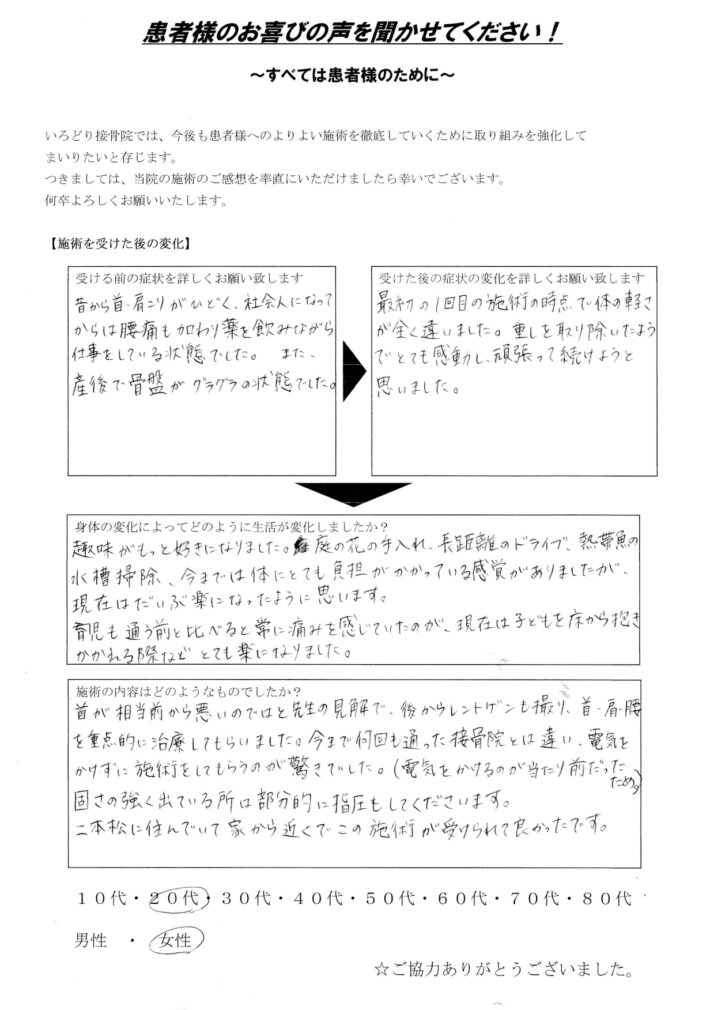 患者様のお喜びの声を聞かせてください！
～すべては患者様のために～
いろどり接骨院では、今後も患者様へのよりよい施術を徹底していくために取り組みを強化して
まいりたいと存じます。
つきましては、当院の施術のご感想を率直にいただけましたら幸いでございます。
何卒よろしくお願いいたします。
【施術を受けた後の変化】
受ける前の症状を詳しくお願い致します
昔から首・肩こりがひどく、社会人になって
からは腰痛も加わり薬を飲みながら
仕事をしている状態でした。 また、
産後で骨盤がグラグラの状態でした。
受けた後の症状の変化を詳しくお願い致します
最初の1回目の施術の時点で体の軽さ
が全く違いました。重しを取り除いたよう
でとても感動し、頑張って続けようと
思いました。
身体の変化によってどのように生活が変化しましたか？
趣味がもっと好きになりました。庭の花の手入れ、長距離のドライブ、熱帯魚の
水槽掃除、今までは体にとても負担がかかっている感覚がありましたが、
現在はだいぶ楽になったように思います。
育児も通う前と比べると常に痛みを感じていたのが、現在は子どもを床から抱き
かかえる際などとても楽になりました。
施術の内容はどのようなものでしたか？
首が相当前から悪いのではと先生の見解で、後からレントゲンも撮り、首・肩・腰
を重点的に治療してもらいました。今まで何回も通った接骨院とは違い、電気を
かけずに施術をしてもらうのが驚きでした。（電気をかけるのが当たり前だった
ため）
固さの強く出ている所は部分的に指圧もしてくださいます。
二本松に住んでいて家から近くでこの施術が受けられて良かったです。
１０代・２０代・３０代・４０代・５０代・６０代・７０代・８０代
男性 ・ 女性
☆ご協力ありがとうございました。